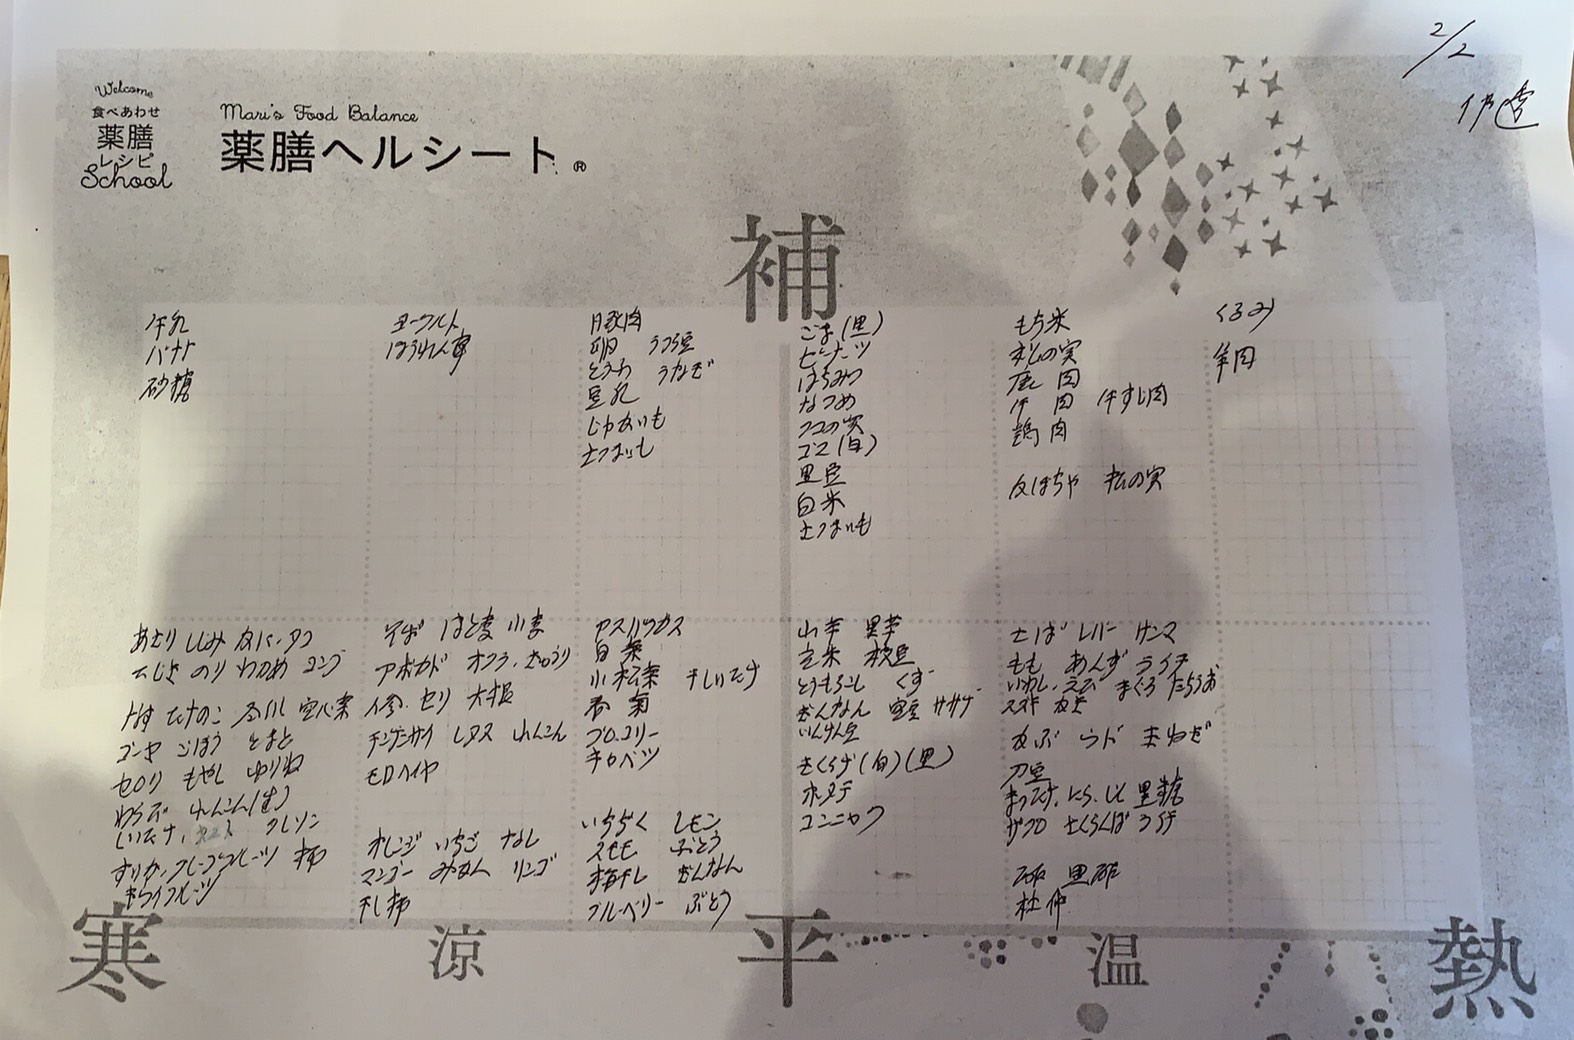 2/2
伊達
Welcome
食べあわせ
薬膳
レシピ
School
Mari's Food Balance
薬膳ヘルシート®
補
牛乳
バナナ
砂糖
ヨーグルト
ほうれん草
豚肉
卵 うづら豆
とうふ うなぎ
豆乳
じゃがいも
さつまいも
ごま(黒)
ピーナッツ
はちみつ
なつめ
クコの実
ゴマ(白)
黒豆
白米
さつまいも
もち米
松の実
鹿肉
牛肉 牛すじ肉
鶏肉
かぼちゃ 松の実
くるみ
羊肉
あさり しじみ かに、タコ
のり わかめ コンブ
ナす たけのこ 空心菜
ゴーヤ ごぼう とまと
セロリ もやし ゆりね
わらび れんこん(生)
しいたけ、 クレソン
すいか、グレープフルーツ 柿
キウイフルーツ
そば はと麦 小麦
アボカド オクラ、きゅうり
セリ 大根
チンゲンサイ レタス れんこん
モロヘイヤ
オレンジ いちご なし
マンゴー みかん リンゴ
干し柿
アスパラガス
白菜
小松菜 干しいたけ
春菊
ブロッコリー
キャベツ
いちぢく レモン
スモモ ぶどう
梅干し ぎんなん
ブルーベリー ぶどう
山芋 里芋
玄米 枝豆
とうもろこし くず
ぎんなん 空豆 ササゲ
いんげん豆
きくらげ(白)(黒)
ホタテ
コンニャク
さば レバー サンマ
もも あんず ライチ
いわし、えび まぐろ たちうお
かぶ ウド 玉ねぎ
刀豆
まつたけ、にら、しそ 黒糖
ザクロ さくらんぼ ライチ
酢 黒酢
杜仲
寒
涼
平
温
熱